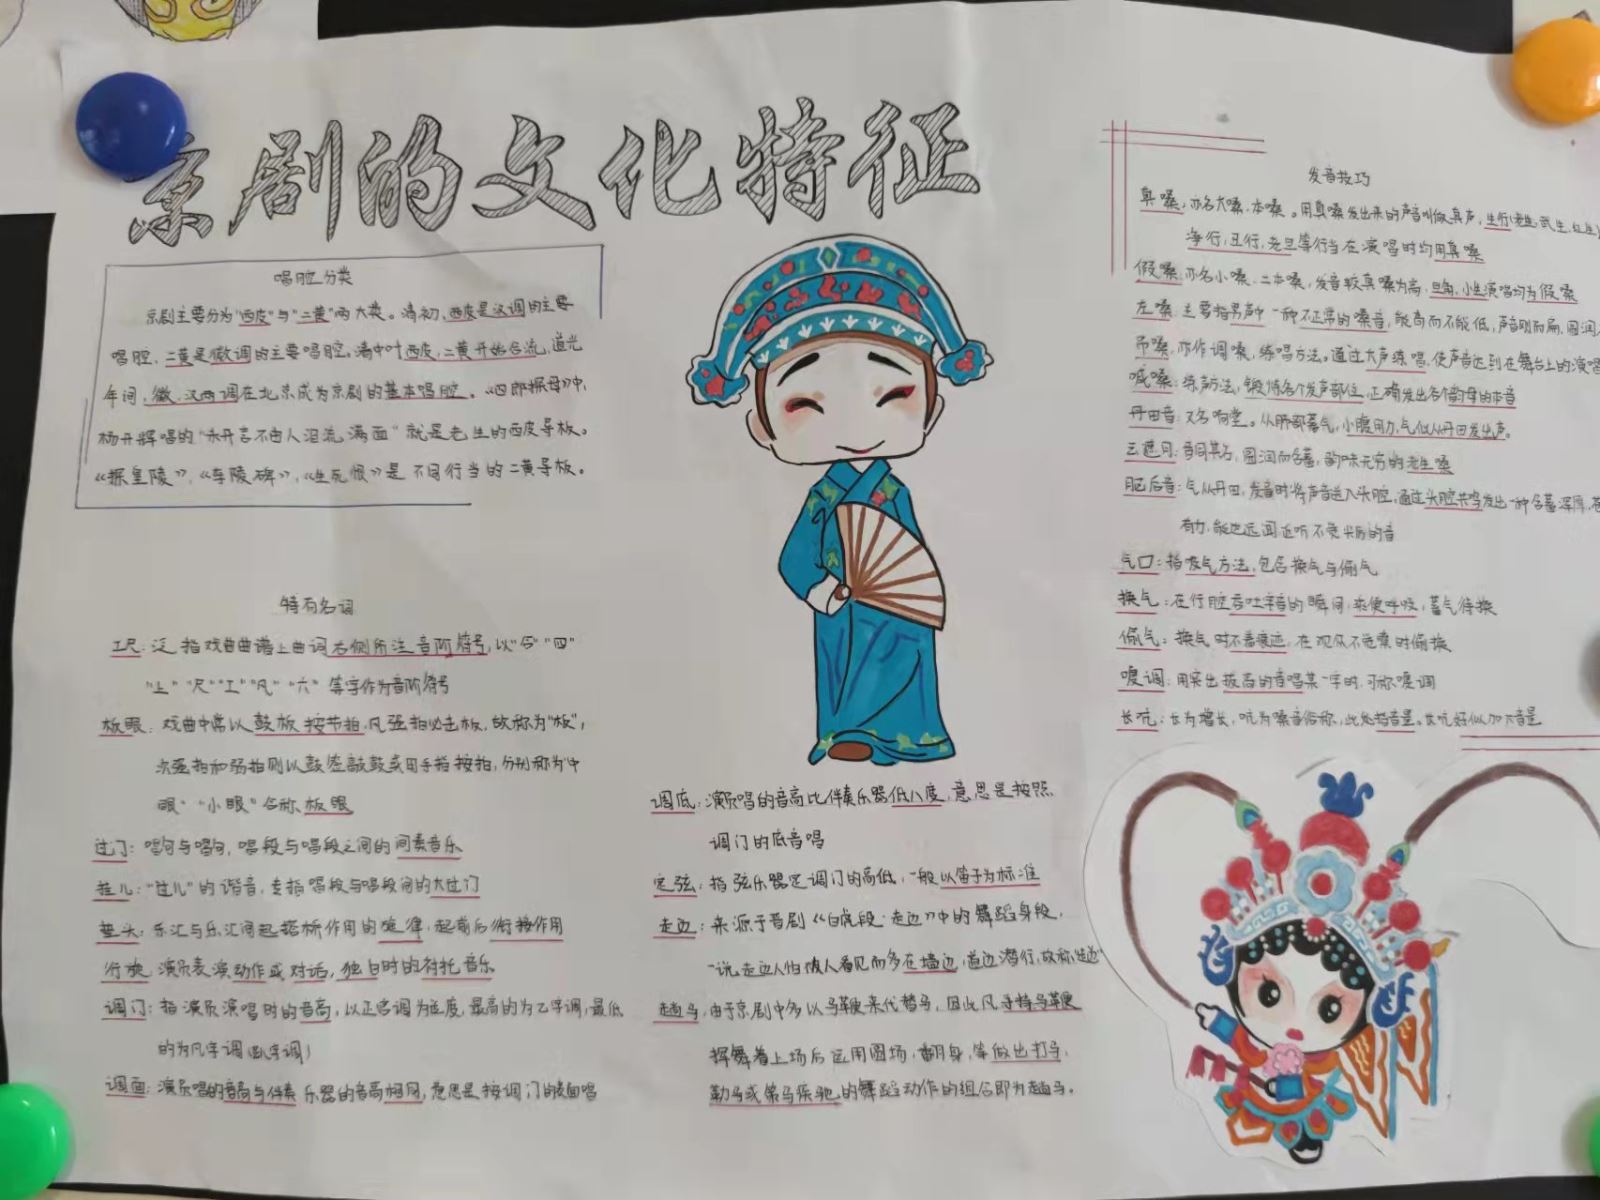 京剧的文化特征
唱腔分类
京剧主要分为"西皮"与"二黄"两大类。清初,西皮是汉调的主要
唱腔,二黄是徽调的主要唱腔。清中叶西皮,二黄开始合流,道光
年间,徽、汉两调在北京成为京剧的基本唱腔。《四郎探母》中,
杨延辉唱的"未开言不由人泪流满面"就是老生的西皮导板。
《探皇陵》,《李陵碑》,《生死恨》是不同行当的二黄导板。
特有名词
工尺:泛指戏曲曲谱上曲词右侧所注音阶符号,以"合""四"
"上""尺""工""凡""六"等字作为音阶符号
板眼:戏曲中常以鼓板按节拍,凡强拍必击板,故称为"板",
次强拍和弱拍则以鼓签敲鼓或用手指按拍,分别称为"中
眼""小眼"合称板眼
过门:唱句与唱句,唱段与唱段之间的间奏音乐
挂儿:"过儿"的谐音,专指唱段与唱段间的大过门
垫头:乐汇与乐汇间起搭桥作用的旋律,起前后衔接作用
行旋 演员表演动作或对话,独白时的衬托音乐
调门:指演员演唱时的音高,以正宫调为标度,最高的为乙字调,最低
的为凡字调(趴字调)
调面:演员唱的音高与伴奏乐器的音高相同,意思是按调门的表面唱
调底:演员唱的音高比伴奏乐器低八度,意思是按照
调门的底音唱
定弦:指弦乐器定调门的高低,一般以笛子为标准
走边:来源于晋剧《白虎段·走边》中的舞蹈身段,
一说走边人怕被人看见而多在墙边,道边潜行,故称"走边"
趟马:由于京剧中多以马鞭来代替马,因此凡手持马鞭
挥舞着上场后运用圆场,翻身,等做出打马,
勒马或策马疾驰的舞蹈动作的组合即为趟马。
发音技巧
真嗓:亦名大嗓、本嗓。用真嗓发出来的声音叫做真声,生行(老生,武生,红生)
净行,丑行,老旦等行当在演唱时均用真嗓
假嗓:亦名小嗓、二本嗓,发音较真嗓为高,旦角,小生演唱均为假嗓
左嗓:主要指男声中一种不正常的嗓音,能高而不能低,声音刚而扁,圆润
吊嗓,亦作调嗓,练唱方法。通过大声练唱,使声音达到在舞台上的演唱
喊嗓:练声方法,锻炼各个发声部位,正确发出各个韵母的本音
丹田音:又名响堂。从肺部蓄气,小腹用力,气似从丹田发出声。
云遮月:音同其名,圆润而含蓄,韵味无穷的老生嗓
脑后音:气从丹田,发音时将声音送入头腔,通过头腔共鸣发出一种含蓄深厚,苍
有力,能达远闻近听不觉尖厉的音
气口:指吸气方法,包含换气与偷气
换气:在行腔吞吐字音的瞬间,爽便呼吸,蓄气待换
偷气:换气时不着痕迹,在观众不觉察时偷换
嘎调:用突出拔高的音唱某一字时,可称嘎调
长吭:长为增长,吭为嗓音俗称,此处指音量。长吭好似加大音量